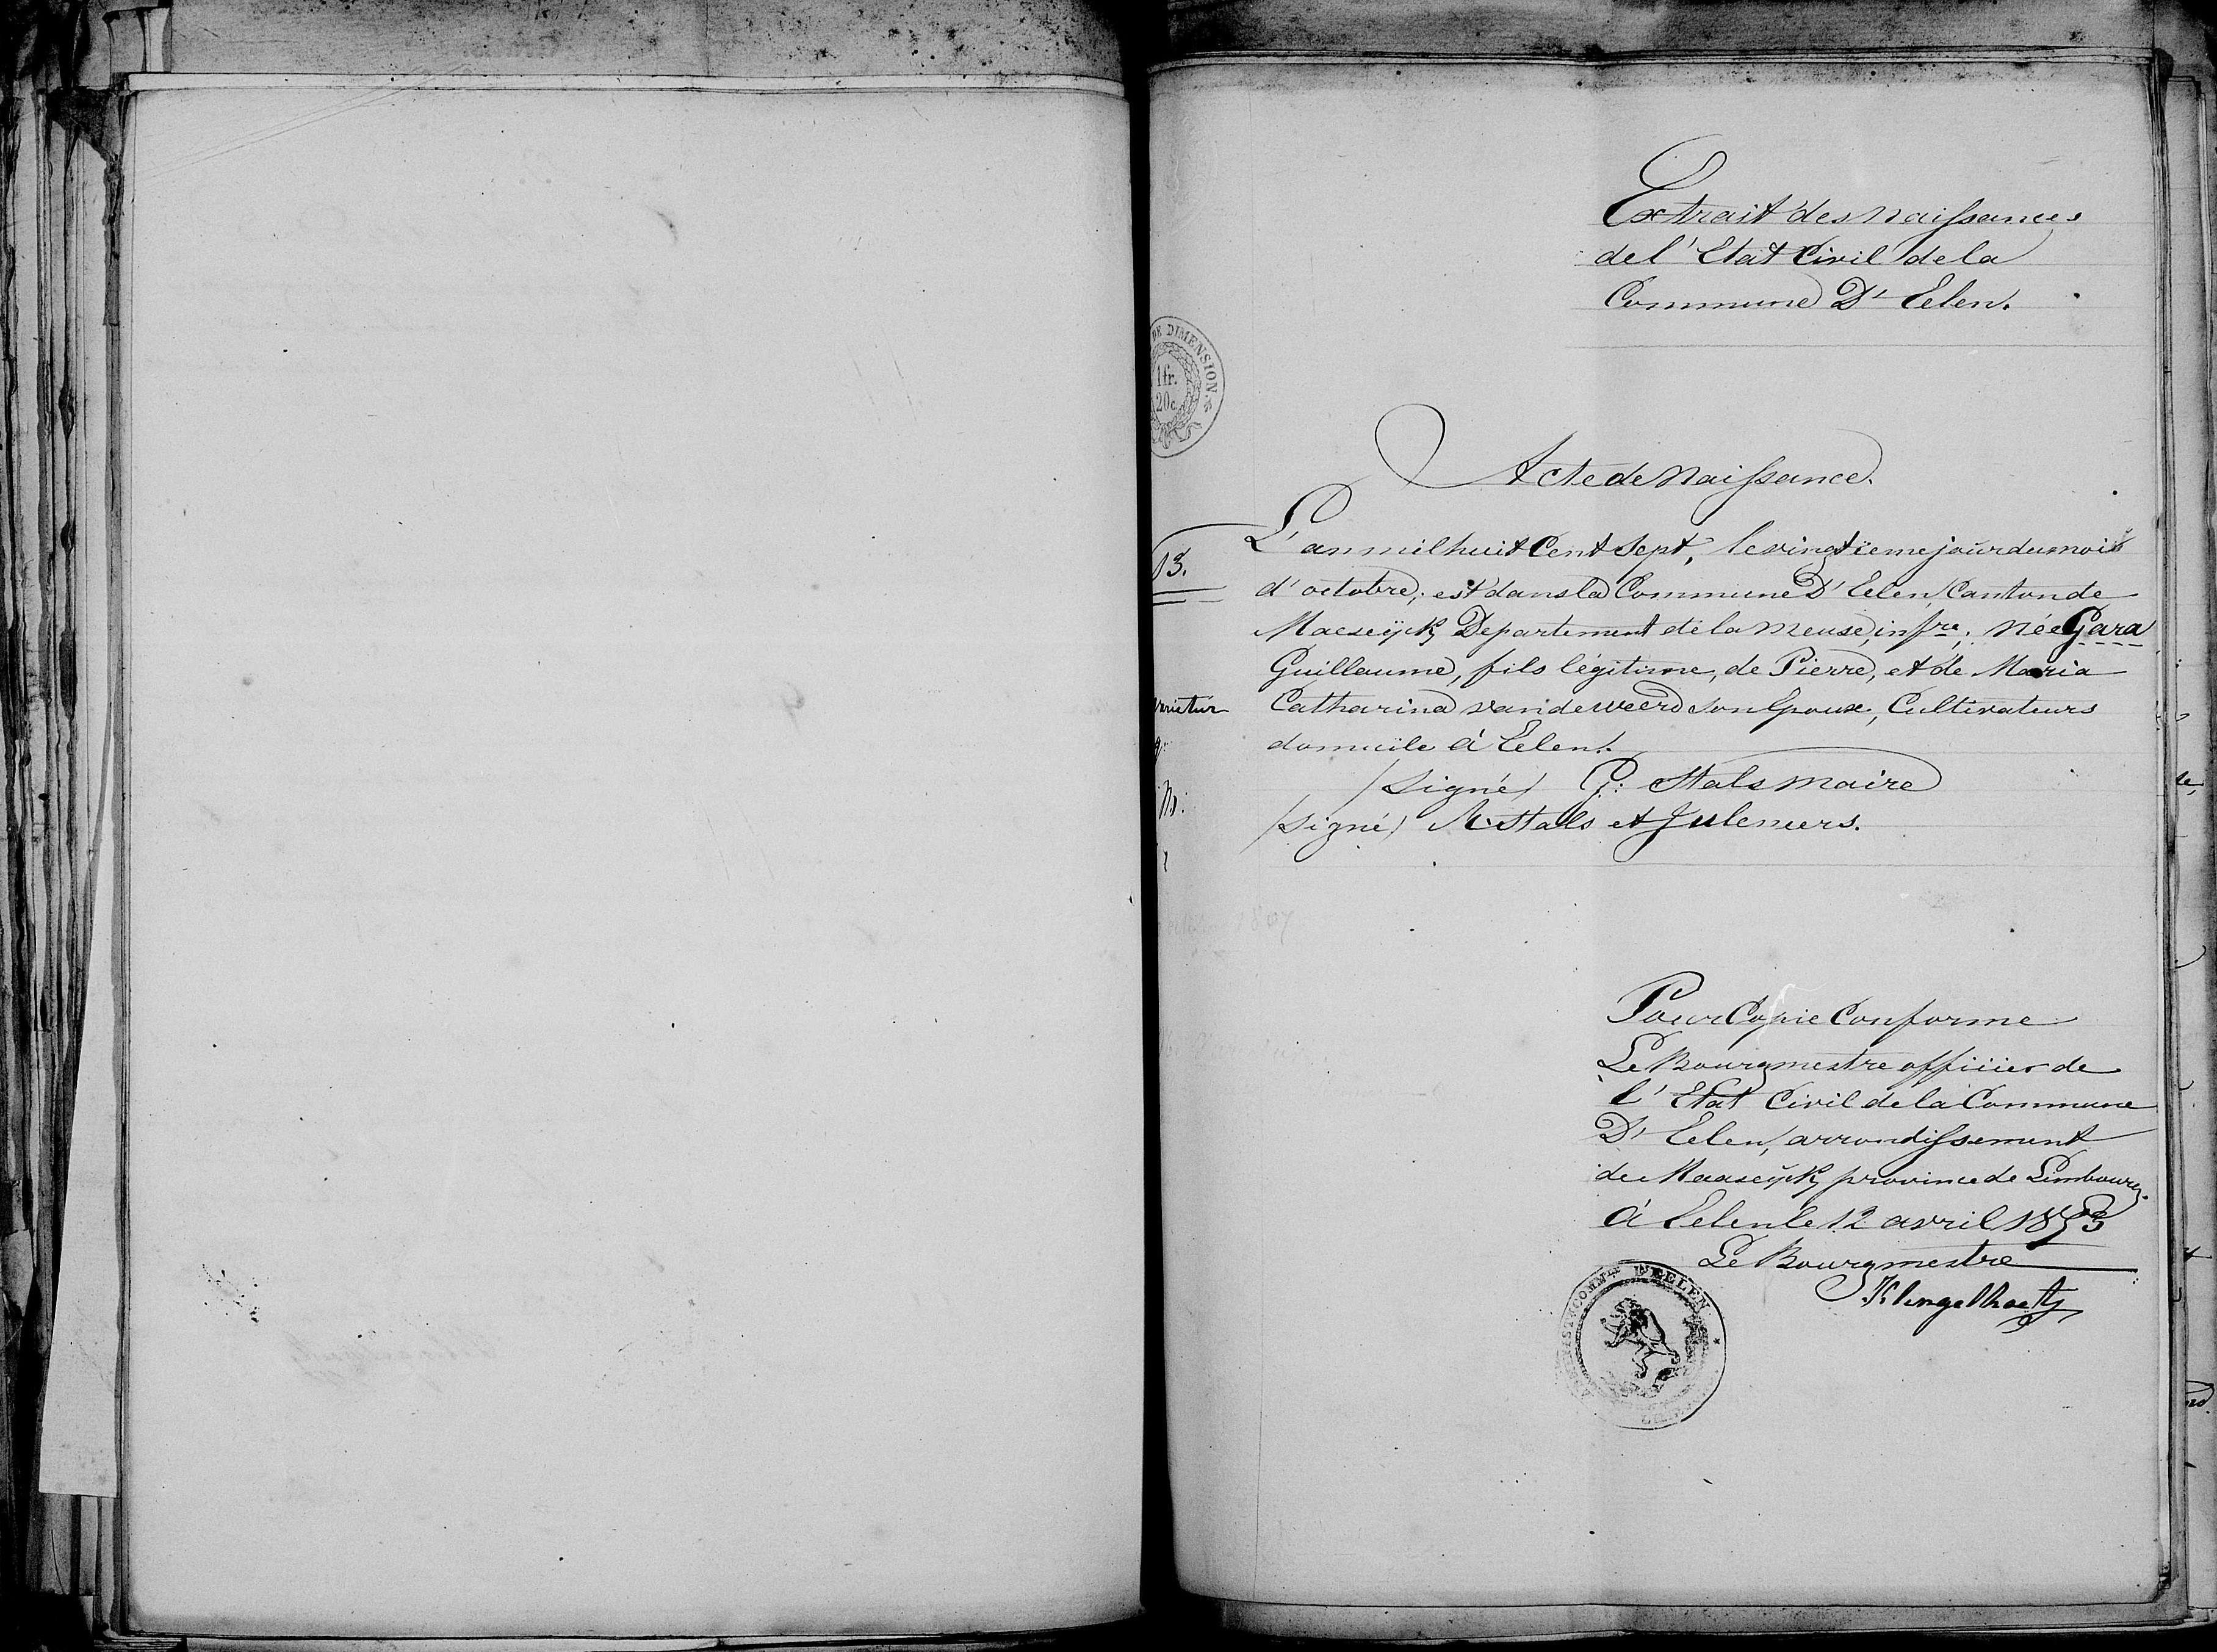 Extrait des naissances
de l'Etat Civil de la
Commune D'Eelen.
DE DIMENSION.
1fr.
20c.
Acte de Naissance.
L'an mil huit Cent Sept, le vingtieme jour du mois
13.
d'octobre, est dans la Commune D'Eelen, Canton de
Maeseÿck, Departement de la Meuse, infre; née Gara
Guillaume, fils légitime, de Pierre, et de Maria
varietur
Catharina van de weerd son Epouse, Cultivateurs
domicile à Eelen.
/Signé/ G: Stals Maire
/Signé/ A: Stals et Juleniers.
octobre 1807
Pour Copie Conforme
Le Bourgmestre officier de
l'Etat Civil de la Commune
D'Eelen, arrondissement
de Maaseÿck, province de Limbourg.
à Eelen le 12 avril 1853
Le Bourgmestre
D'EELEN